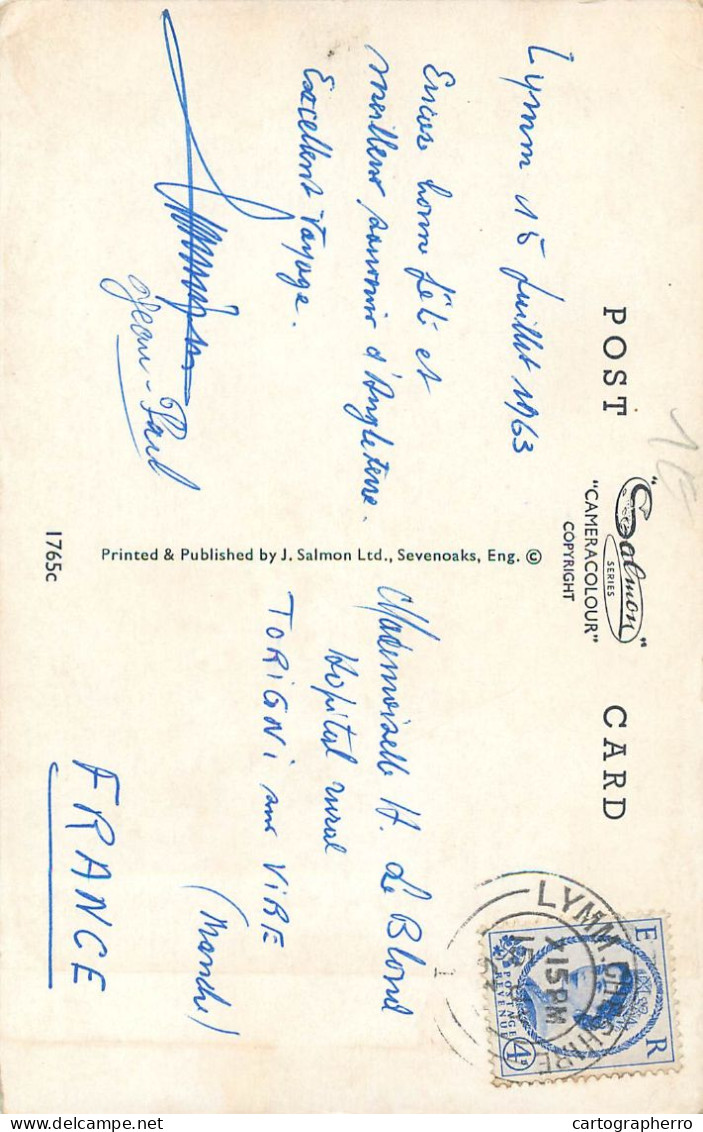 POST CARD
"Salmon"
SERIES
"CAMERACOLOUR"
COPYRIGHT
Lymm 15 Juillet 1963
Encore bonne fête et
meilleur souvenir d'Angleterre.
Excellent voyage.
Jean-Paul
Printed & Published by J. Salmon Ltd., Sevenoaks, Eng. ©
1765c
Mademoiselle H. Le Blond
Hopital rural
TORIGNI sur VIRE
(Manche)
FRANCE
LYMM. CHESHIRE
X15PM
E R
POSTAGE
REVENUE
4D
cartographerro